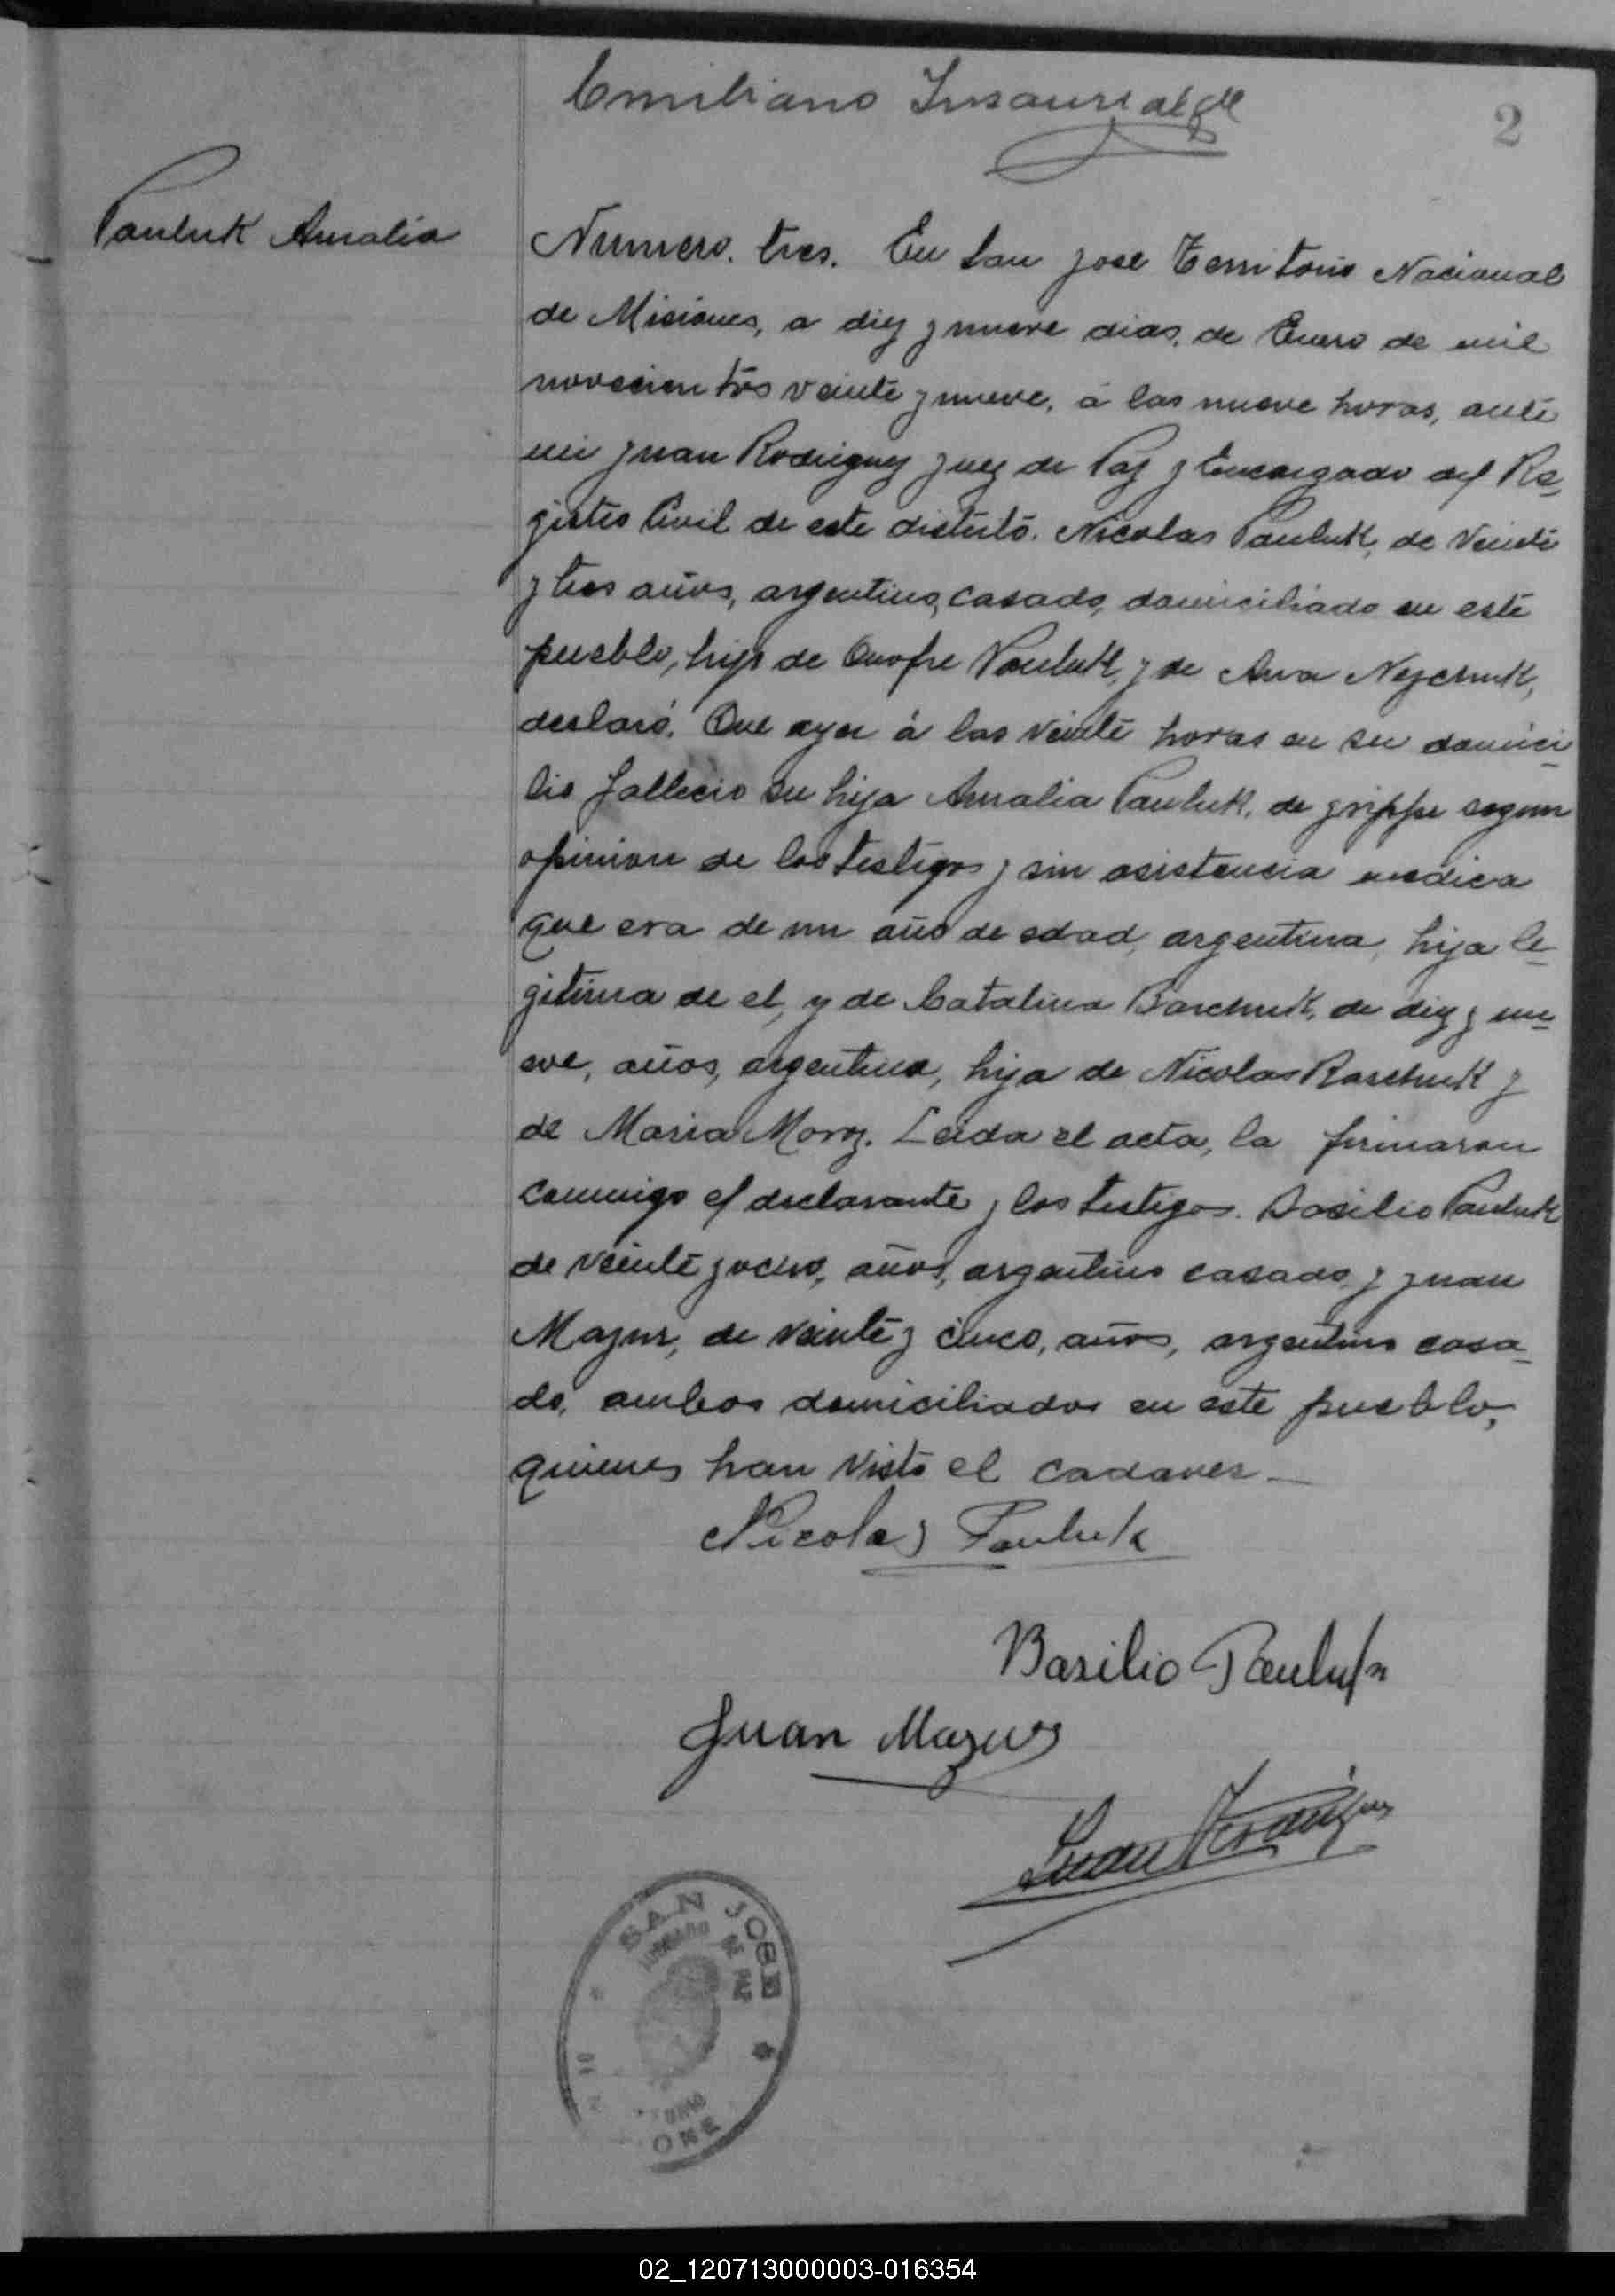 Emiliano Insaurralde
2
Pauluk Amalia
Numero. tres. En San Jose Territorio Nacional
de Misiones, a diez y nueve dias, de Enero de mil
novecientos veinte y nueve, á las nueve horas, ante
mi Juan Rodriguez Juez de Paz y Encargado del Re-
gistro Civil de este distrito. Nicolas Pauluk, de veinte
y tres años, argentino, casado, domiciliado en este
pueblo, hijo de Onofre Pauluk, y de Ana Neychuk,
declaró. Que ayer á las veinte horas en su domici-
lio fallecio su hija Amalia Pauluk, de grippe segun
opinion de los testigos y sin asistencia medica
que era de un año de edad, argentina, hija le-
gitima de el, y de Catalina Barchuk, de diez y nu-
eve, años, argentina, hija de Nicolas Barchuk y
de Maria Moroz. Leida el acta, la firmaron
conmigo el declarante y los testigos. Basilio Pauluk
de veinte y ocho, años, argentino casado, y Juan
Mazur, de veinte y cinco, años, argentino casa-
do, ambos domiciliados en este pueblo,
quienes han visto el cadaver
Nicolas Pauluk
Basilio Pauluk
Juan Mazur
Juan Rodriguez
SAN JOSE
JUZGADO DE PAZ
ONE
02_120713000003-016354